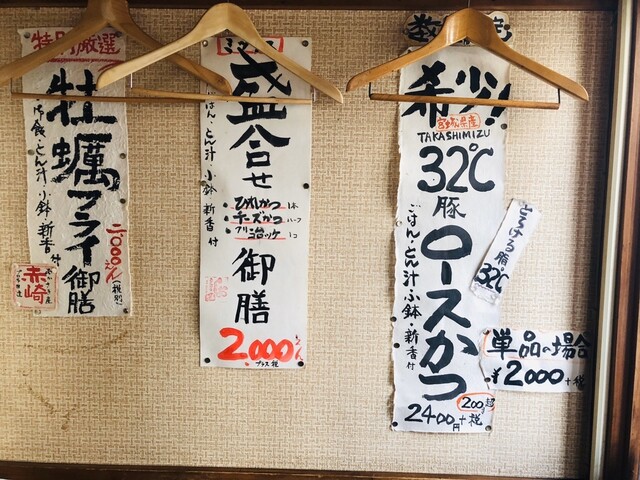 数
希少!
宮城県産
TAKASHIMIZU
32℃
豚
ロースかつ
ごはん・とん汁・小鉢・新香付
200g超
2400円+税
とろける脂
32℃
単品の場合
¥2000+税
盛合せ
ごはん・とん汁 小鉢 新香 付
ひれかつ 1本
チーズかつ ハーフ
1コ
御膳
2,000
プラス税
特別厳選
牡蠣フライ御膳
定食・とん汁 小鉢・新香 付
二〇〇〇えん(税別)
赤崎